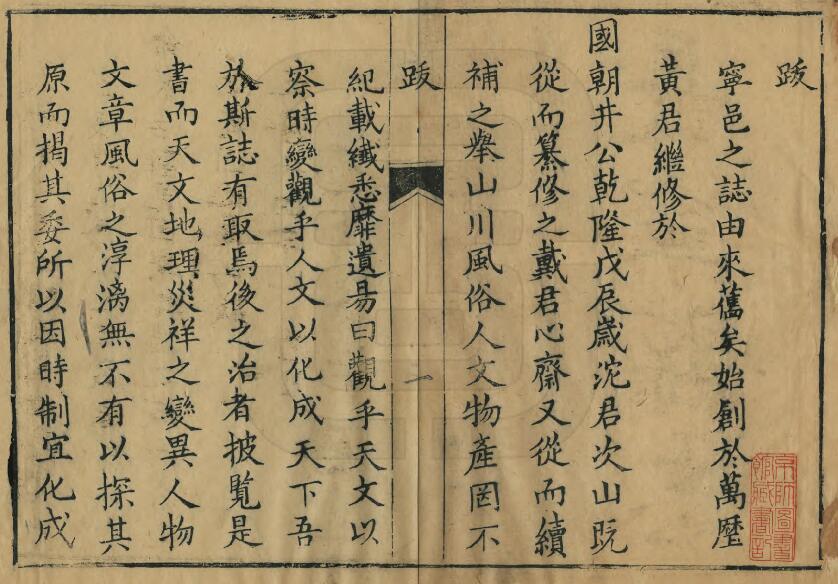 跋
寧邑之誌由來舊矣始創於萬歷
黃君繼修於
國朝井公乾隆戊辰歲沈君次山既
從而纂修之戴君心齋又從而續
補之舉山川風俗人文物產罔不
跋
一
紀載纖悉靡遺易曰觀乎天文以
察時變觀乎人文以化成天下吾
於斯誌有取焉後之治者披覧是
書而天文地理災祥之變異人物
文章風俗之淳漓無不有以探其
原而揭其委所以因時制宜化成